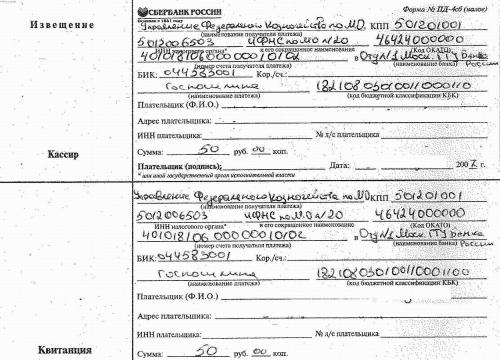 Извещение
СБЕРБАНК РОССИИ
Основан в 1841 году
Форма № ПД-4сб (налог)
Управление Федерального казначейства по МО КПП 501201001
(наименование получателя платежа)
5012006503 ИФНС по МО №20 46424000000
ИНН налогового органа* и его сокращенное наименование (Код ОКАТО)
40101810600000010102 в Отд №1 Моск. ГТУ Банка России
(номер счета получателя платежа) (наименование банка)
БИК: 044583001 Кор./сч.:
Госпошлина 18210803010011000110
(наименование платежа) (код бюджетной классификации КБК)
Плательщик (Ф.И.О.)
Адрес плательщика:
ИНН плательщика: № л/с плательщика:
Сумма: 50 руб. 00 коп.
Кассир
Плательщик (подпись): Дата: 2007 г.
* или иной государственный орган исполнительной власти
Управление Федерального казначейства по МО КПП 501201001
(наименование получателя платежа)
5012006503 ИФНС по МО №20 46424000000
ИНН налогового органа* и его сокращенное наименование (Код ОКАТО)
40101810600000010102 в Отд №1 Моск. ГТУ Банка России
(номер счета получателя платежа) (наименование банка)
БИК: 044583001 Кор./сч.:
Госпошлина 18210803010011000110
(наименование платежа) (код бюджетной классификации КБК)
Плательщик (Ф.И.О.)
Адрес плательщика:
ИНН плательщика: № л/с плательщика:
Квитанция
Сумма: 50 руб. 00 коп.